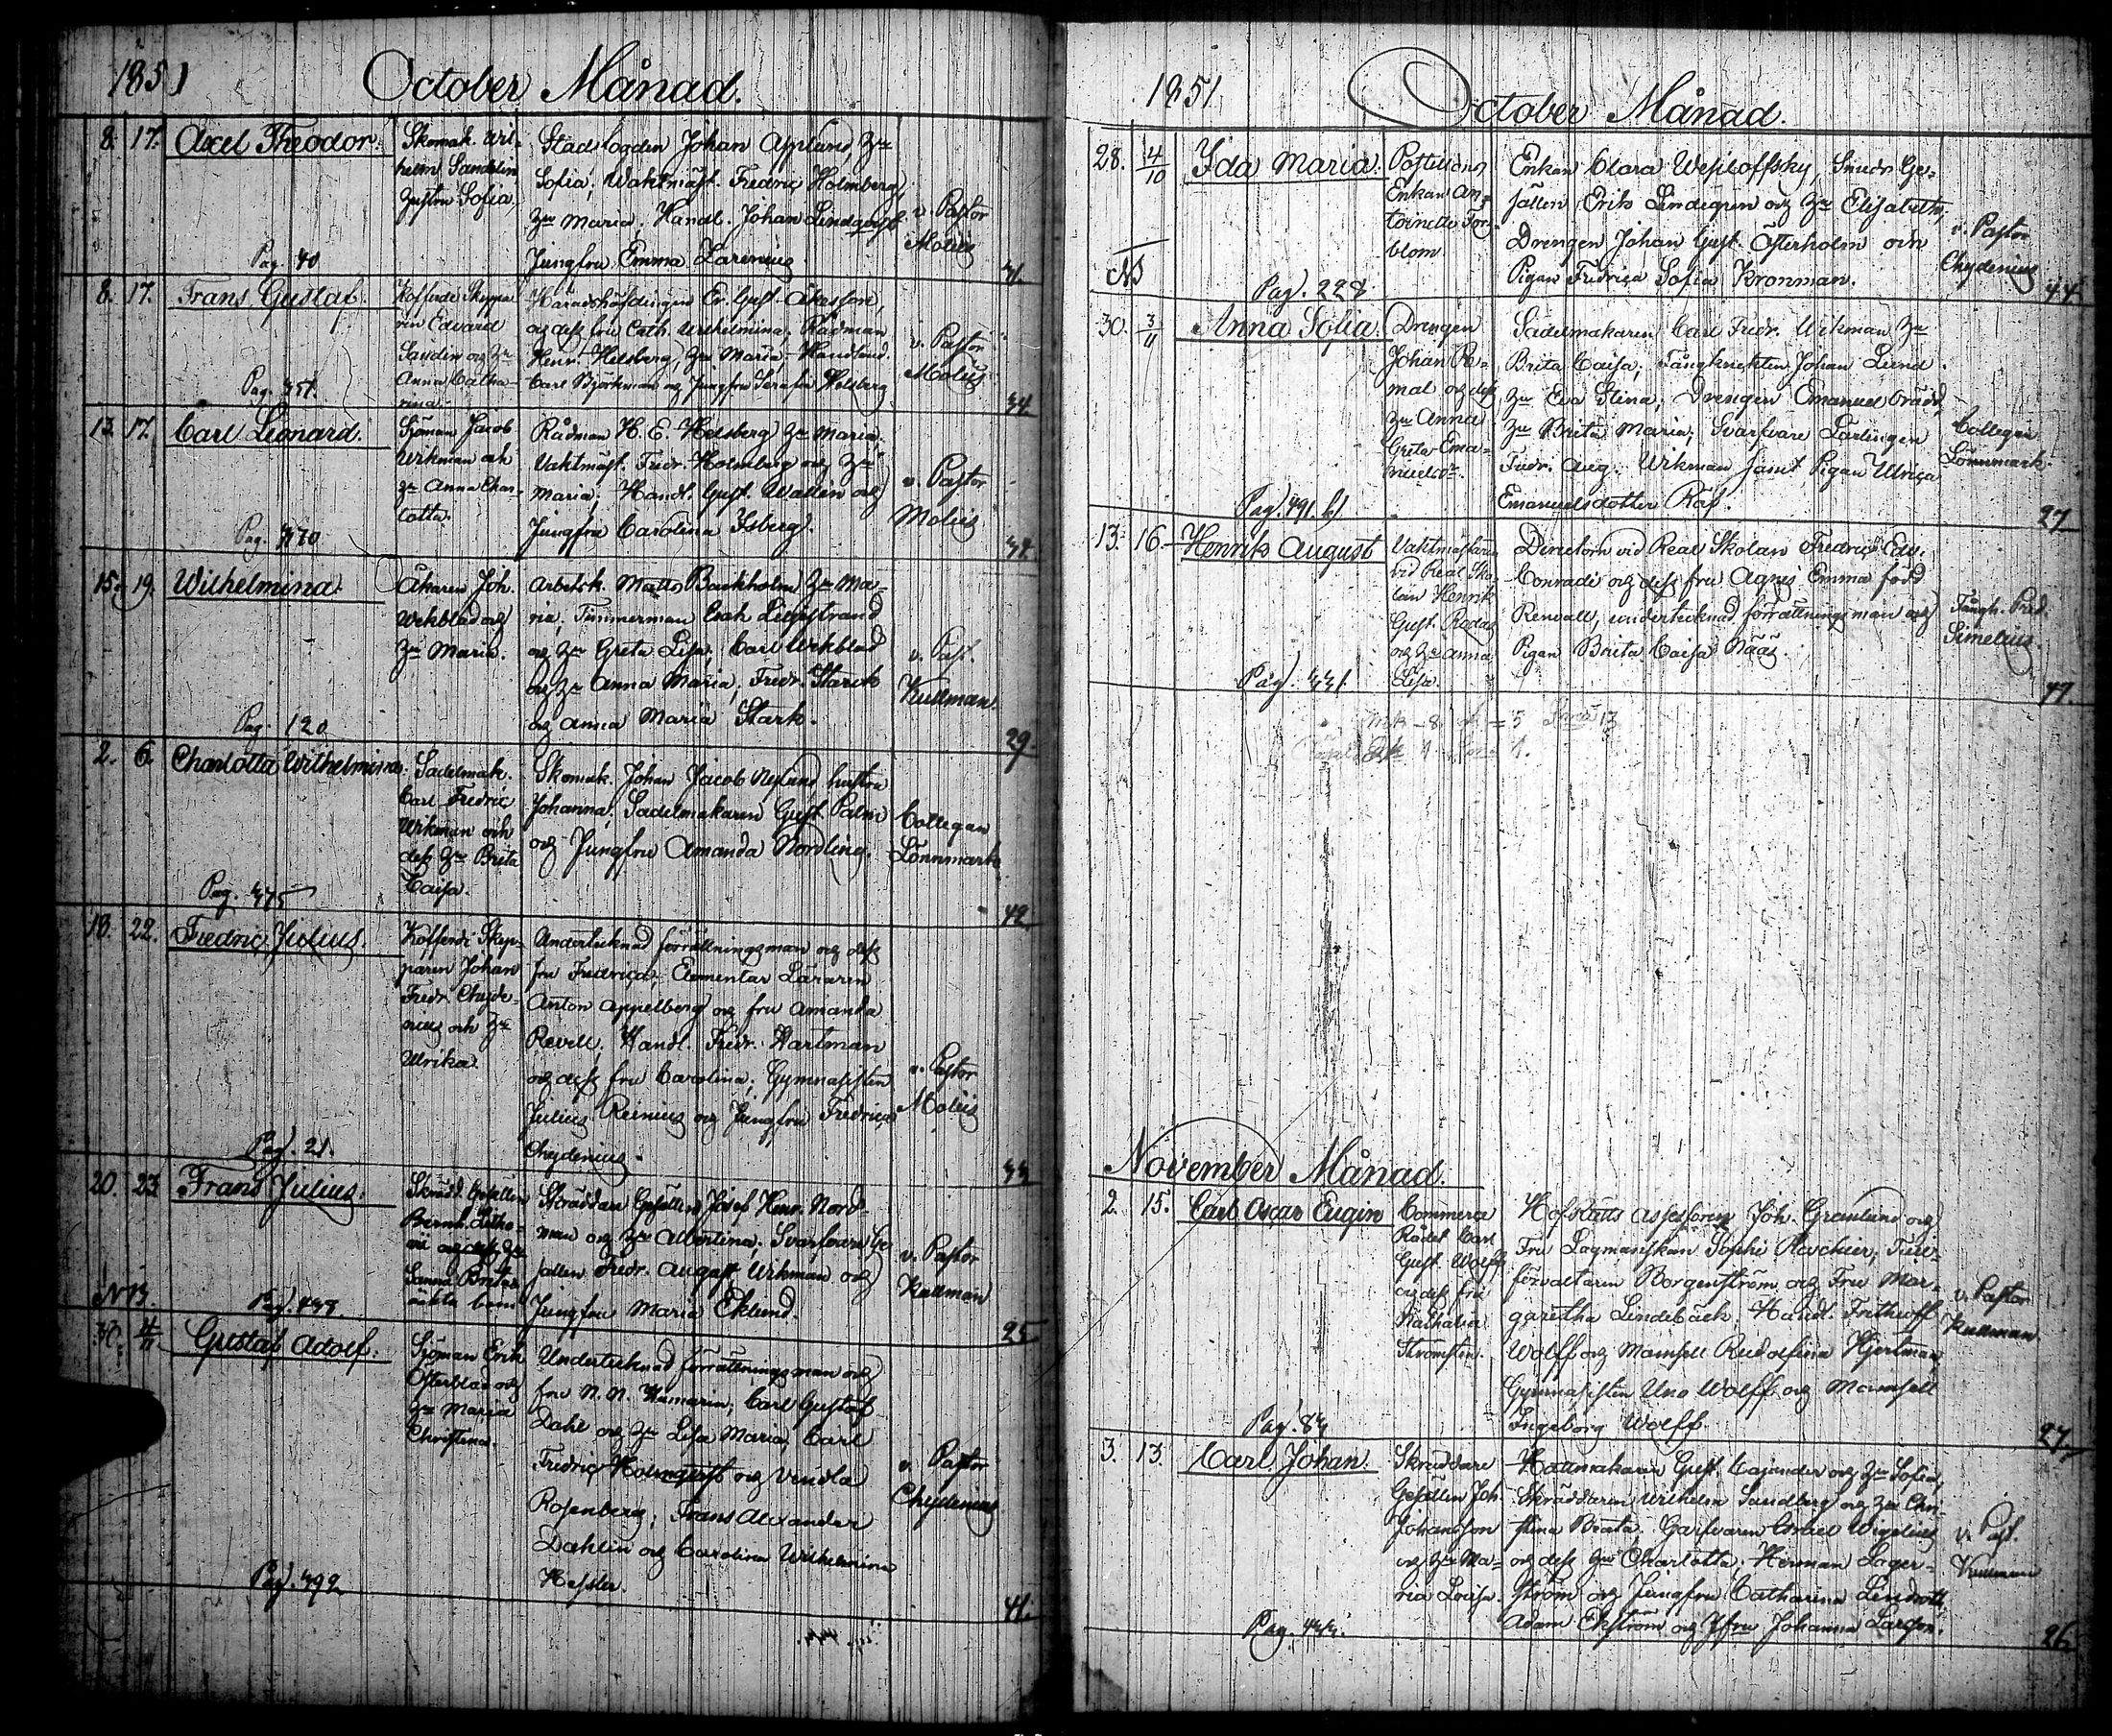 1851 October Månad.
8. 17. Axel Theodor.
Skomak. Wil-
helm Sandelin
hustru Sofia,
Stads Johan Applund, Hu
Sofia; Waktmäst. Fredric Holmberg,
Hu Maria, Handl. Johan Lindqvist
Jungfru Emma Larenius
v. Pastor
Molis
Pag. 40
31.
8. 17. Frans Gustaf.
Kofferdi Skeppa-
ren Edvard
Sandin och Hu
Anna Catha-
rina.
Häradshöfdingen Er. Gust. Åkesson,
och dess fru Cath. Wilhelmina; Rådman
Henr. Helsberg, Hu Maria, Handland.
Carl Björkman och Jungfru Serafia Helsberg
v. Pastor
Molis
Pag. 351.
34.
13. 17. Carl Leonard.
Sjöman Jacob
Wikman och
Hu Anna Char-
lotta.
Rådman H. E. Helsberg Hu Maria,
Vaktmäst. Fredr. Holmberg och Hu
Maria; Handl. Gust. Wallin och
Jungfru Carolina Isberg.
v. Pastor
Molis
Pag. 370
34.
15. 19. Wilhelmina.
Åkaren Joh.
Wekblad och
Hu Maria.
Arbetsk. Matts Backholm Hu Ma-
ria; Timmerman Esak Liljestrand
och Hu Greta Lisa; Carl Wekblad
och Hu Anna Maria, Fredr. Starck
och Anna Maria Stark.
v. Past.
Kullman.
Pag. 120
29.
2. 6. Charlotta Wilhelmina.
Sadelmak.
Carl Fredric
Wikman och
dess Hu Brita
Caisa.
Skomak. Johan Jacob Nylund, hustru
Johanna; Sadelmakaren Gust. Palm
och Jungfru Amanda Nordling.
Collegan
Lönnmark
Pag. 375
42
18. 22. Fredric Julius.
Kofferdi Skep-
paren Johan
Fredr. Chyde-
nius och Hu
Ulrika
Undertecknad förrättningsman och dess
fru Fredrica; Elementar Läraren
Anton Appelberg och fru Amanda
Revell, Handl. Fredr. Hartman
och dess fru Carolina; Gymnasisten
Julius Reinius och Jungfru Fredrica
Chydenius.
v. Pastor
Molis
Pag. 21.
33
20. 23. Frans Julius.
Skrädd. Gesällen
Bernh. Litho-
nii och dess Hu
Sanna Britas
äkta barn
Skräddare Gesällen Josef Henr. Nord-
man och Hu Albertina; Svarfvare Ge-
sällen Fredr. August Wikman och
Jungfru Maria Eklund.
v. Pastor
Kullman
NB. Pag. 438.
25
30. 4/11 Gustaf Adolf.
Sjöman Erik
Österblad och
Hu Maria
Christina.
Undertecknad förrättningsman och
fru N. N. Hamarin; Carl Gustaf
Dahl och Hu Lisa Maria; Carl
Fredric Holmqvist och Vendla
Rosenberg; Frans Alexander
Dahlin och Carolina Wilhelmina
Hessler.
v. Pastor
Chydenius.
Pag. 392
41.
1851 October Månad.
28. 4/10 Ida Maria.
Postillions
Enkan An-
toinette Tor-
blom.
Enkan Clara Wesiloffsky, Smeds Ge-
sällen Erik Lindegren och Hu Elisabeth,
Drengen Johan Gust. Österholm och
Pigan Fredrica Sofia Kronman.
v. Pastor
Chydenius
NB Pag. 228
44.
30. 3/11 Anna Sofia.
Drengen
Johan Ro-
mal och dess
Hu Anna
Greta Ema-
nuelsdr.
Sadelmakaren Carl Fredr. Wikman Hu
Brita Caisa; Fångknekten Johan Lund.
Hu Eva Stina; Drengen Emanuel Brädd,
Hu Brita Maria; Svarfvare Lärlingen
Fredr. Aug. Wikman samt Pigan Ulrica
Emanuelsdotter Råf.
Collegan
Lönnmark.
Pag. 491. b)
27
13. 16. Henrik August
Vaktmästaren
vid Real Sko-
lan Henrik
Gust. Rodas
och Hu Anna
Lisa.
Directorn vid Real Skolan Fredric Edv.
Conradi och dess fru Agnes Emma född
Renvall, undertecknad förrättningsman och
Pigan Brita Caisa Nääs.
Fångh. Pred.
Simelius.
Pag. 331.
47.
November Månad.
2. 15. Carl Oscar Eugin
Commerce
Rådet Carl
Gust. Wolff
och dess fru
Nathalia
Strömsten.
Hofrätts Assessoren Joh. Granlund och
Fru Lagmanskan Sophi Ravchier; Tull-
förvaltaren Borgenström och Fru Mar-
garetha Lindebäck; Handl. Frithioff
Wolff och Mamsell Rudolfina Hjertman,
Gymnasisten Uno Wolff och Mamsell
Ingeborg Wolff.
v. Pastor
Kullman
Pag. 83
27
3. 13. Carl Johan
Skräddare
Gesällen Joh.
Johansson
och Hu Ma-
ria Lovisa.
Hattmakaren Gust. Cajander och Hu Sofia,
Skräddaren Wilhelm Sandberg och Hu Chri-
stina Beata; Garfvaren Israel Wigelius
och dess Hu Charlotta; Herman Lager-
ström och Jungfru Catharina Lindroth,
Adam Ekström och Jfru Johanna Larsson.
v. Past.
Kullman
Pag. 433.
26